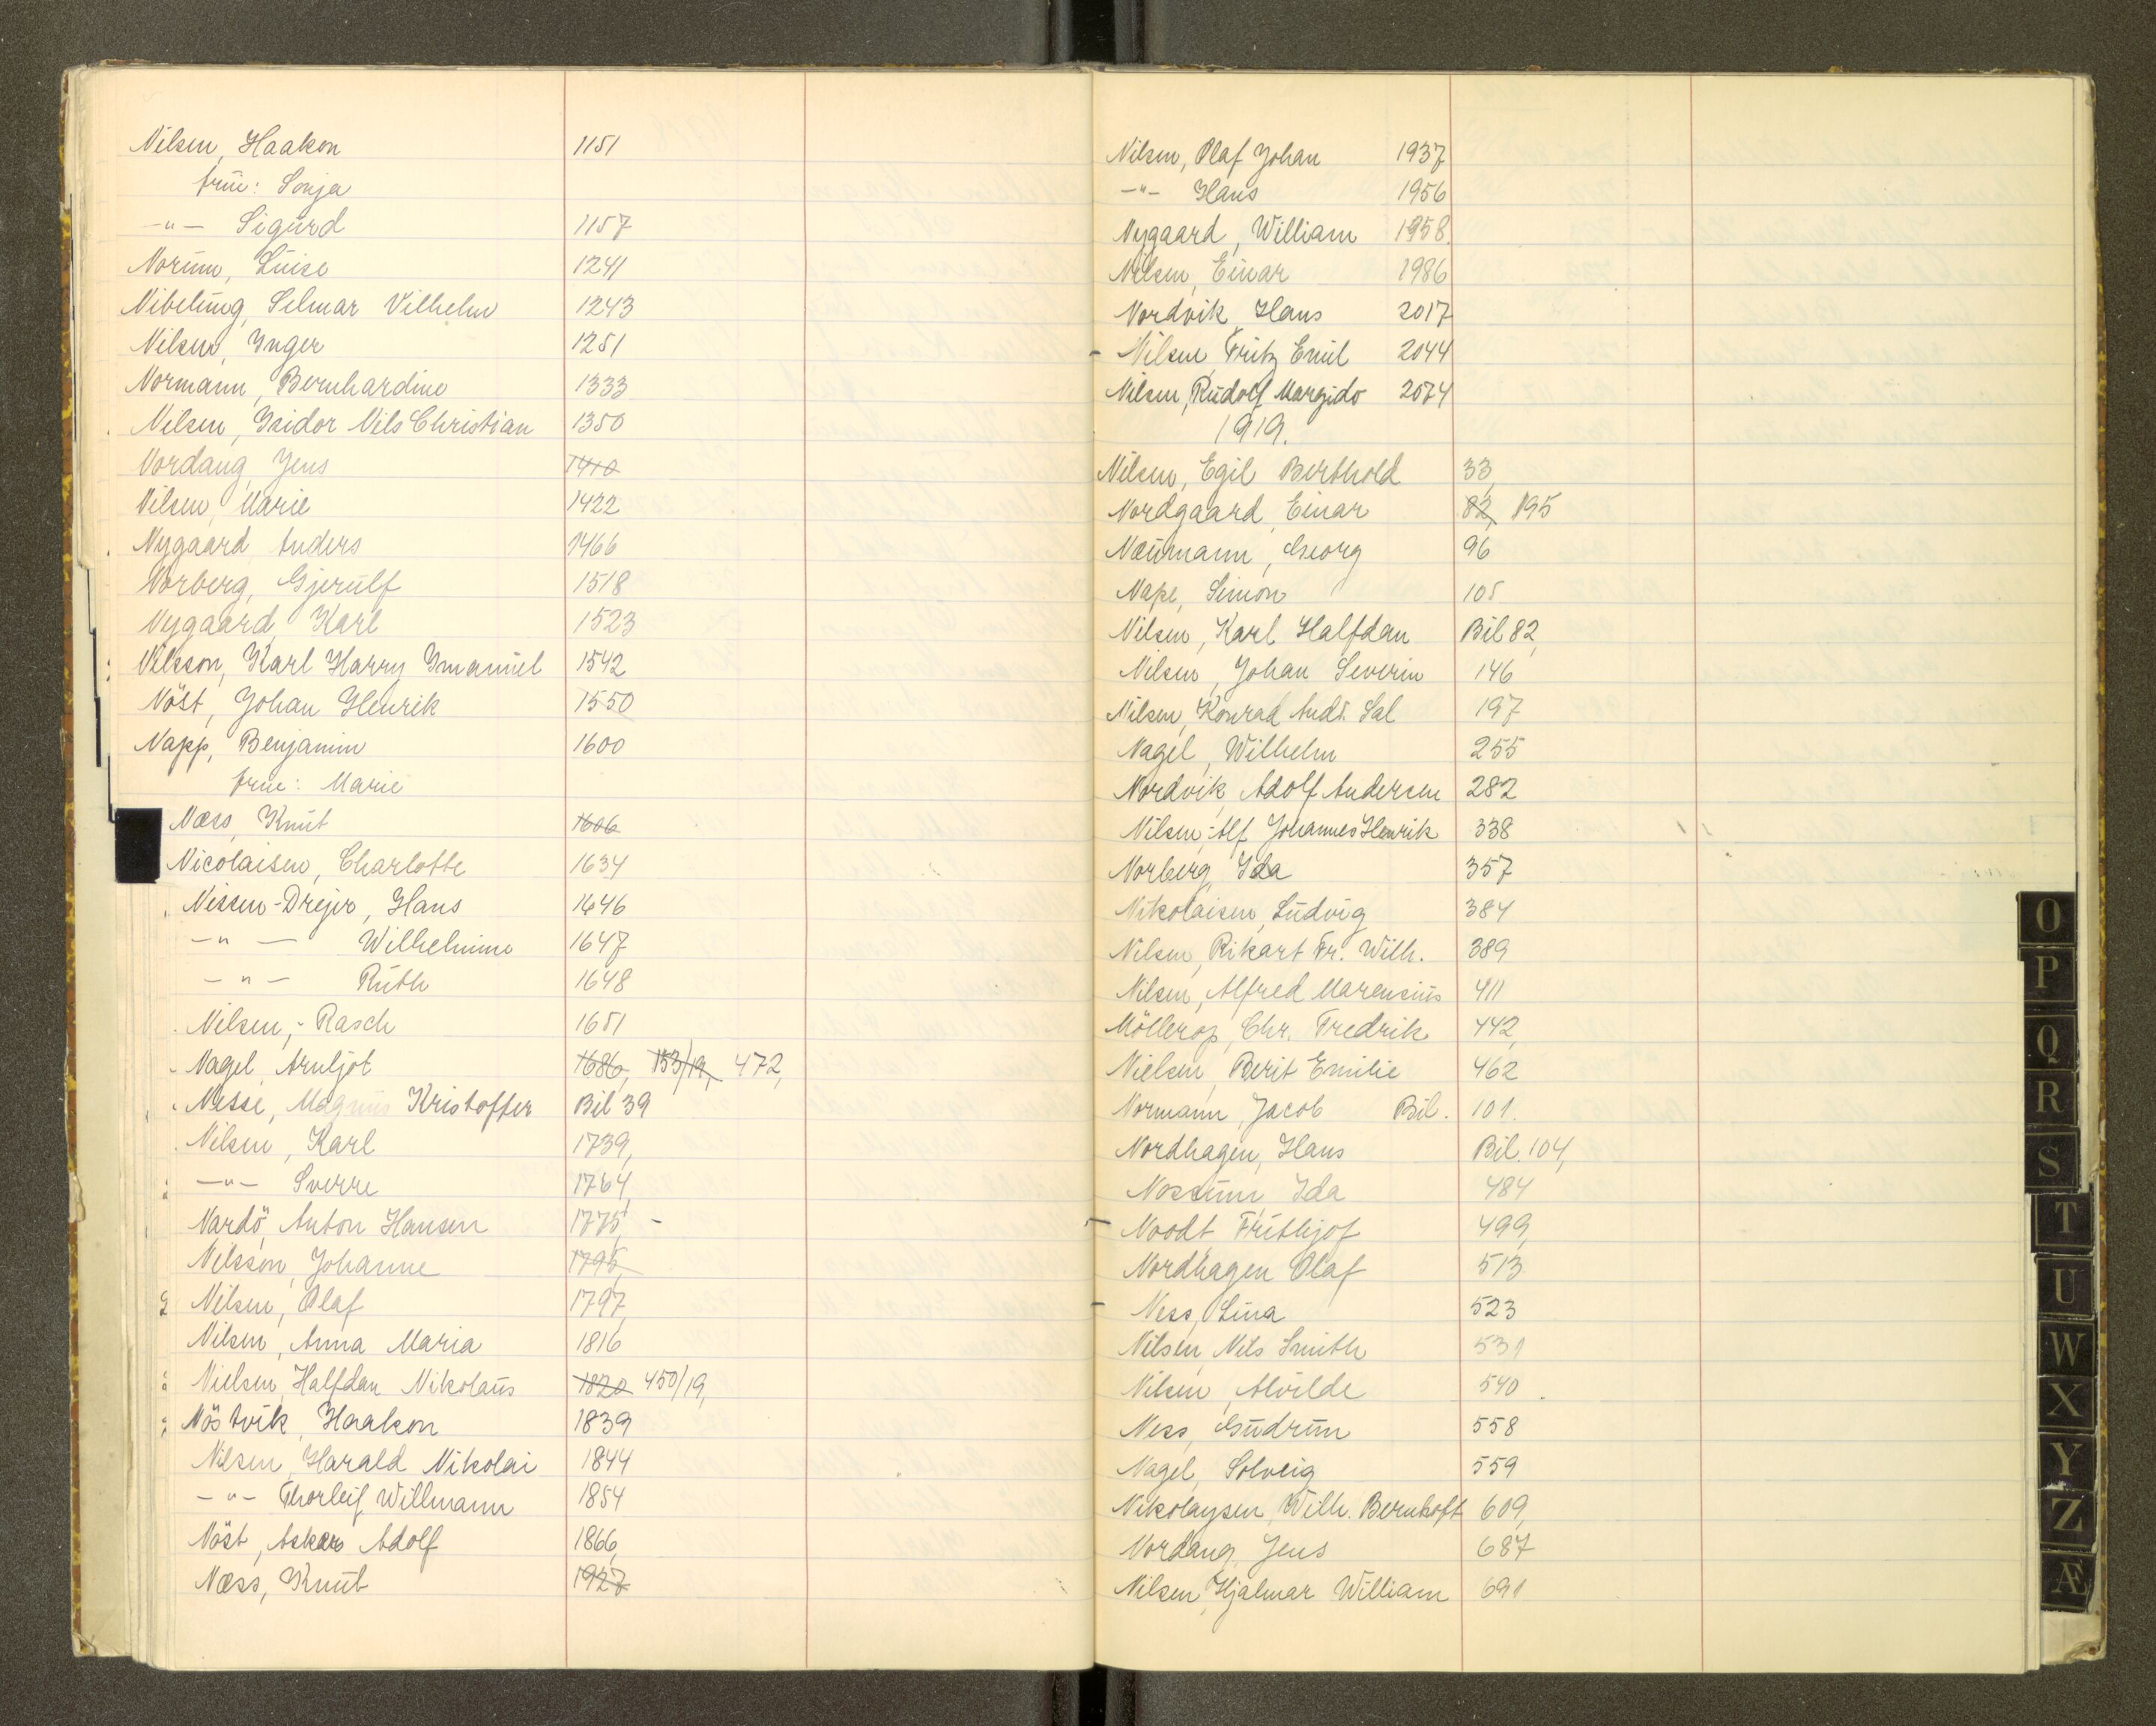 Nilsen, Haakon 1151
frue: Sonja
-"- Sigurd 1157
Norum, Luise 1241
Nibeling, Selmar Vilhelm 1243
Nilsen, Ynger 1251
Normann, Bernhardine 1333
Nilsen, Isidor Nils Christian 1350
Nordang, Jens 1410
Nilsen, Marie 1422
Nygaard, Anders 1466
Norberg, Gjerulf 1518
Nygaard, Karl 1523
Nilsson, Karl Harry Imanuel 1542
Nöst, Johan Henrik 1550
Napp, Benjamin 1600
frue: Marie
Næss, Knut 1606
Nicolaisen, Charlotte 1634
Nissen-Drejer, Hans 1646
-"- Wilhelmine 1647
-"- Ruth 1648
Nilsen,- Rasch 1651
Nagel, Arnljot 1686, 153/19, 472,
Nesse, Magnus Kristoffer Bil 39
Nilsen, Karl 1739,
-"- Sverre 1764,
Nardö, Anton Hansen 1775, -
Nilsson, Johanne 1795,
Nilsen, Olaf 1797,
Nilsen, Anna Maria 1816
Nielsen, Halfdan Nikolaus 1820 450/19,
Nöstvik, Haakon 1839
Nilsen, Harald Nikolai 1844
-"- Thorleif Willmann 1854
Nöst, Asker Adolf 1866,
Næss, Knut 1927
Nilsen, Olaf Johan 1937
-"- Hans 1956
Nygaard, William 1958.
Nilsen, Einar 1986
Nordvik, Hans 2017
- Nilsen, Fritz Emil 2044
Nilsen, Rudolf Margido 2074
1919.
Nilsen, Egil Berthold 33,
Nordgaard, Einar 82, 195
Naumann, Georg 96
Nape, Simon 105
Nilsen, Karl Halfdan Bil 82,
Nilsen, Johan Severin 146
Nilsen, Konrad Andr. Sal 197
Nagel, Wilhelm 255
Nordvik, Adolf Andersen 282
Nilsen,- Alf Johannes Henrik 338
Norberg, Ida 357
Nikolaisen, Ludvig 384
Nilsen, Rikart Fr. Wilh. 389
Nilsen, Alfred Marensius 411
Möllerop, Chr. Fredrik 442,
Nielsen, Berit Emilie 462
Normann, Jacob Bil. 101.
Nordhagen, Hans Bil. 104,
Nossum, Ida 484
- Noodt, Frithjof 499,
Nordhagen Olaf 513
- Ness, Lina 523
Nilsen, Nils Smith 531
Nilsen, Alvilde 540
Ness, Gudrun 558
Nagel, Solveig 559
Nikolaysen, Wilh. Bernhoft 609,
Nordang, Jens 687
Nilsen, Hjalmar William 691
O
P
Q
R
S
T
U
W
X
Y
Z
Æ